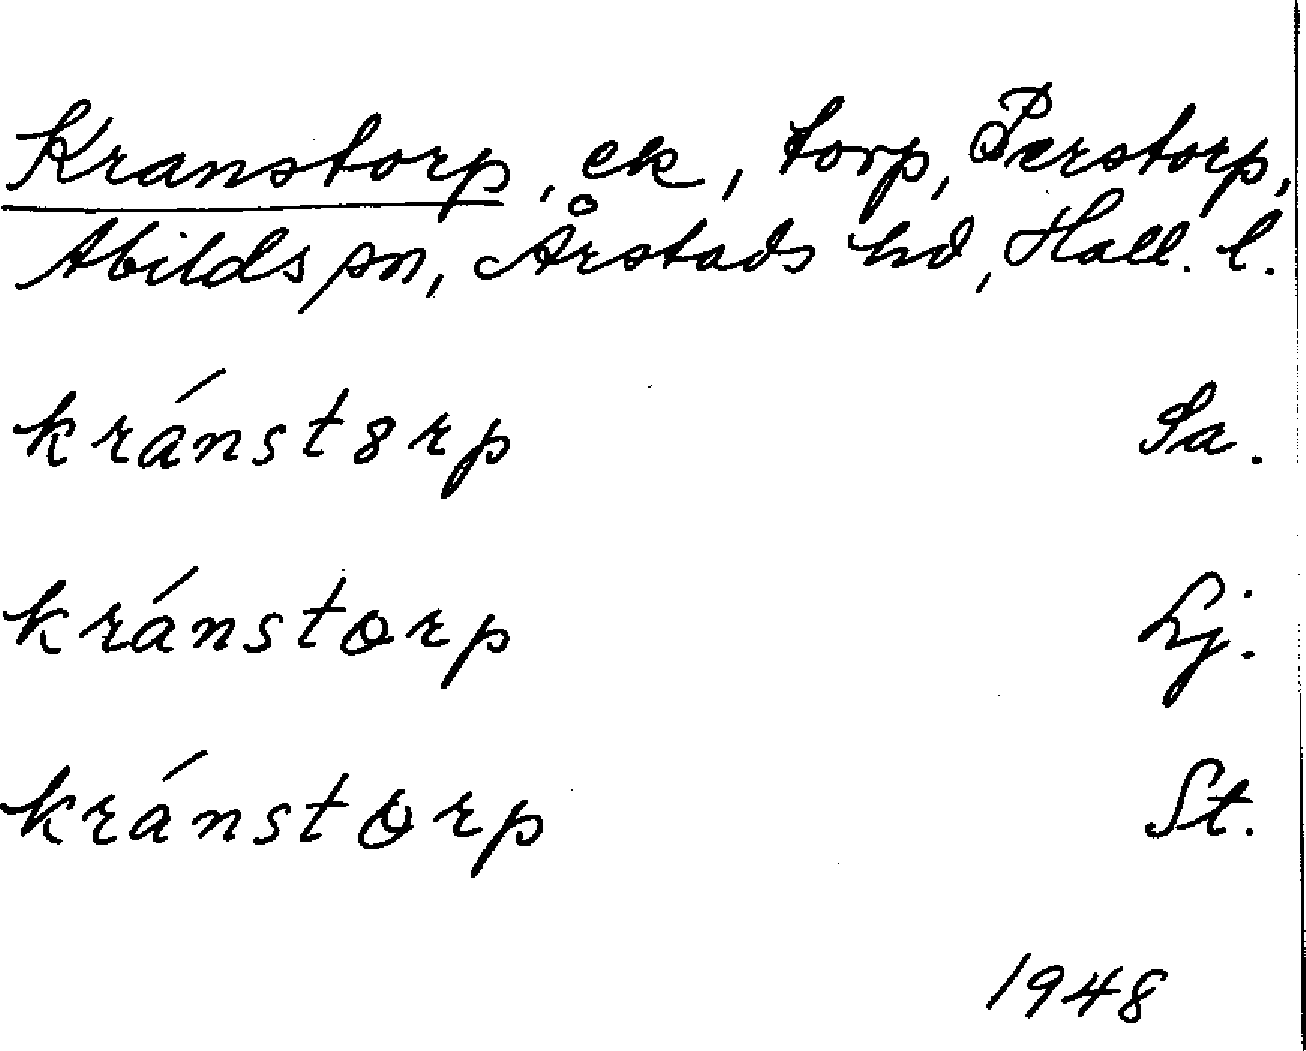 Kranstorp, ek, torp, Perstorp,
Abilds sn, Årstads hd, Hall. l.
kránstȣrp Sa.
kránstɷrp Lj.
kránstɷrp St.
1948